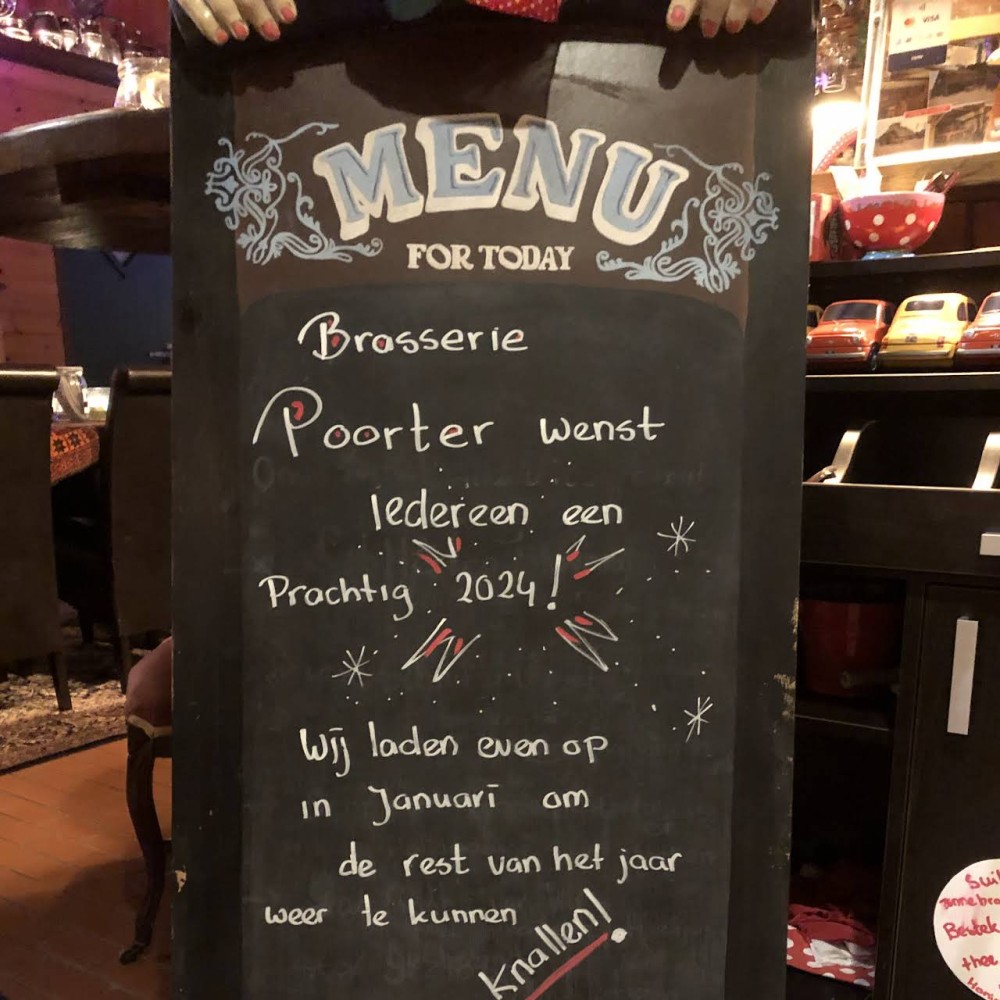 VISA
MENU
FOR TODAY
Brasserie
Poorter wenst
Iedereen een
Prachtig 2024!
Wij laden even op
in Januari om
de rest van het jaar
weer te kunnen
Knallen!
thee